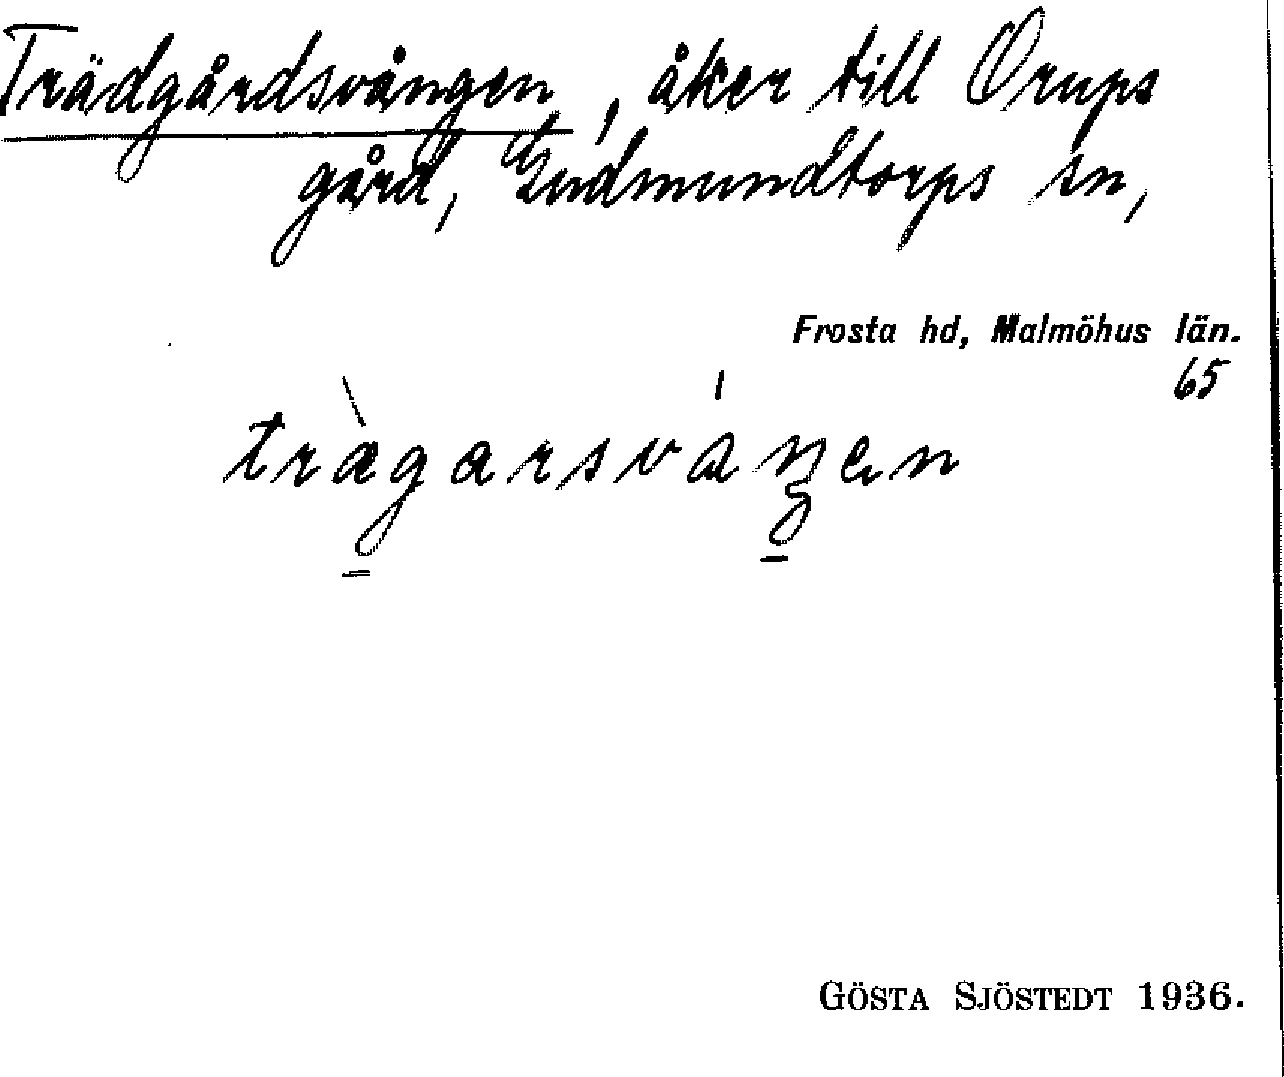 Trädgårdsvången, åker till Orups
gård, Gudmundtorps sn,
Frosta hd, Malmöhus län.
65
trægarsvaŋen
GÖSTA SJÖSTEDT 1936.